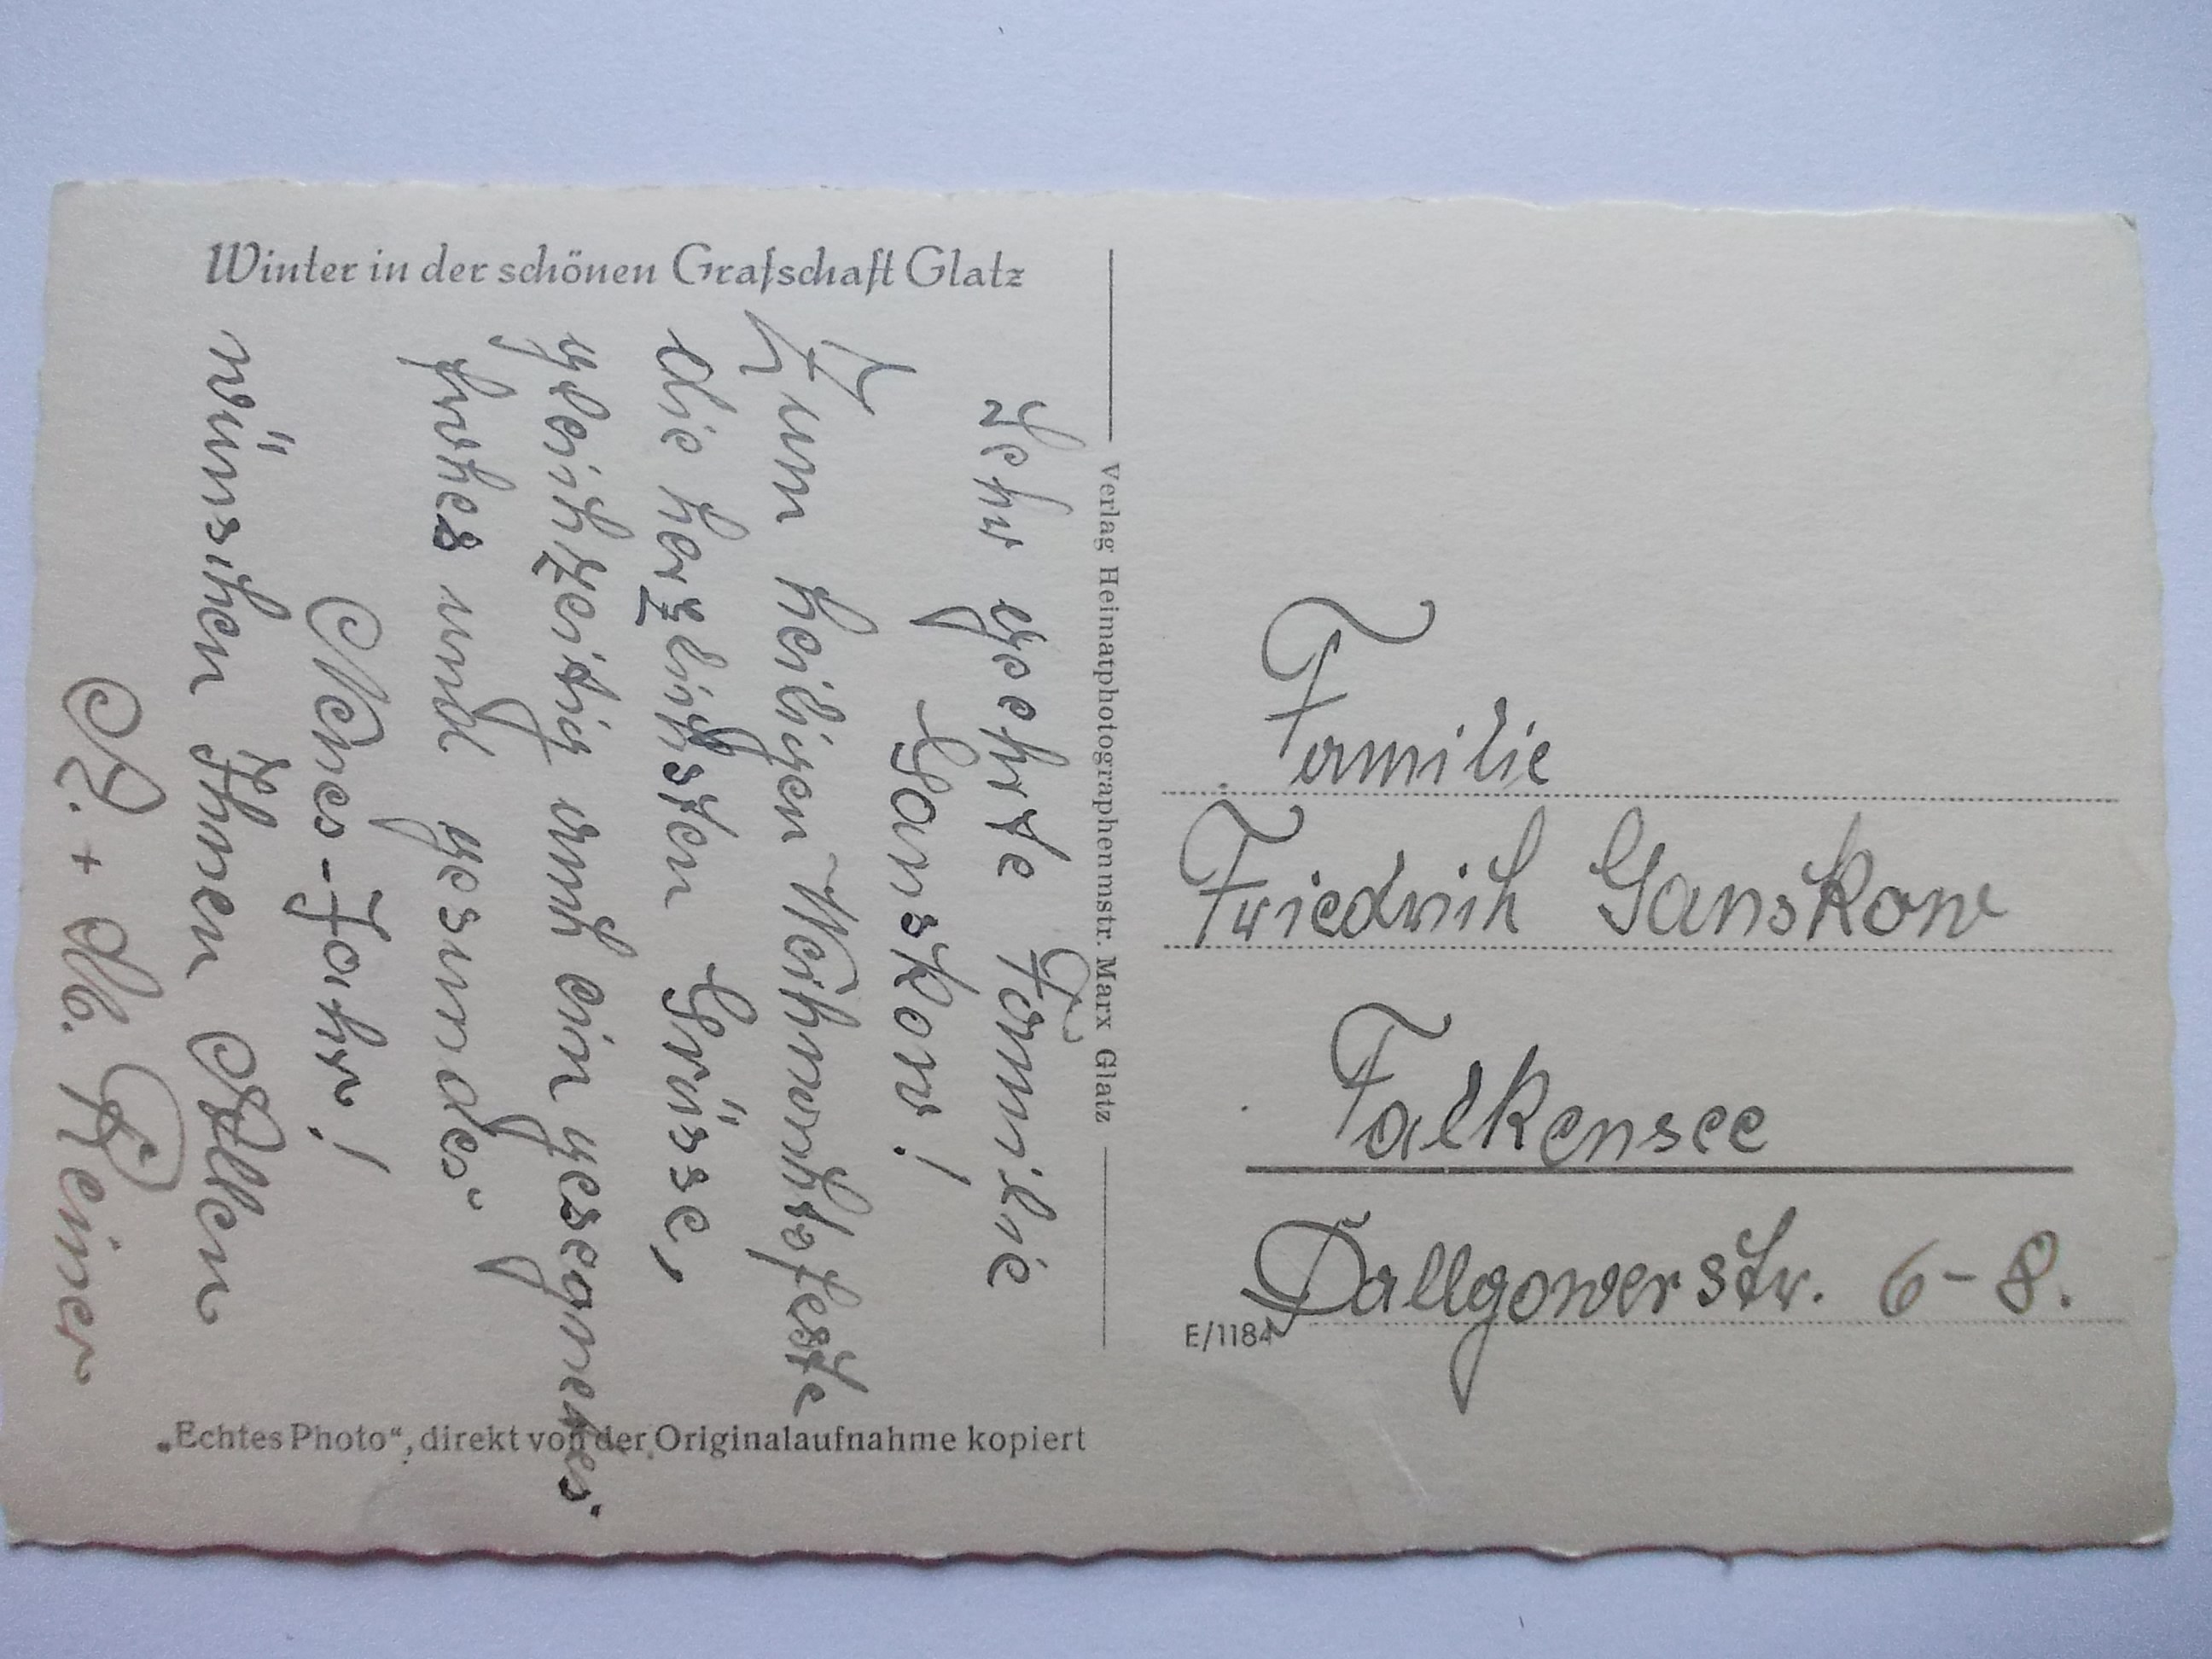 Winter in der schönen Grafschaft Glatz
Sehr geehrte Familie
Ganskow!
Zum heiligen Weihnachtsfeste
die herzlichsten Grüsse,
gleichzeitig auch ein gesegnetes
frohes und gesundes
Neues-Jahr!
wünschen Ihnen Allen
A. + M. Reiner
„Echtes Photo“, direkt von der Originalaufnahme kopiert
Verlag Heimatphotographenmstr. Marx Glatz
Familie
Friedrich Ganskow
Falkensee
Dallgowerstr. 6-8.
E/1184